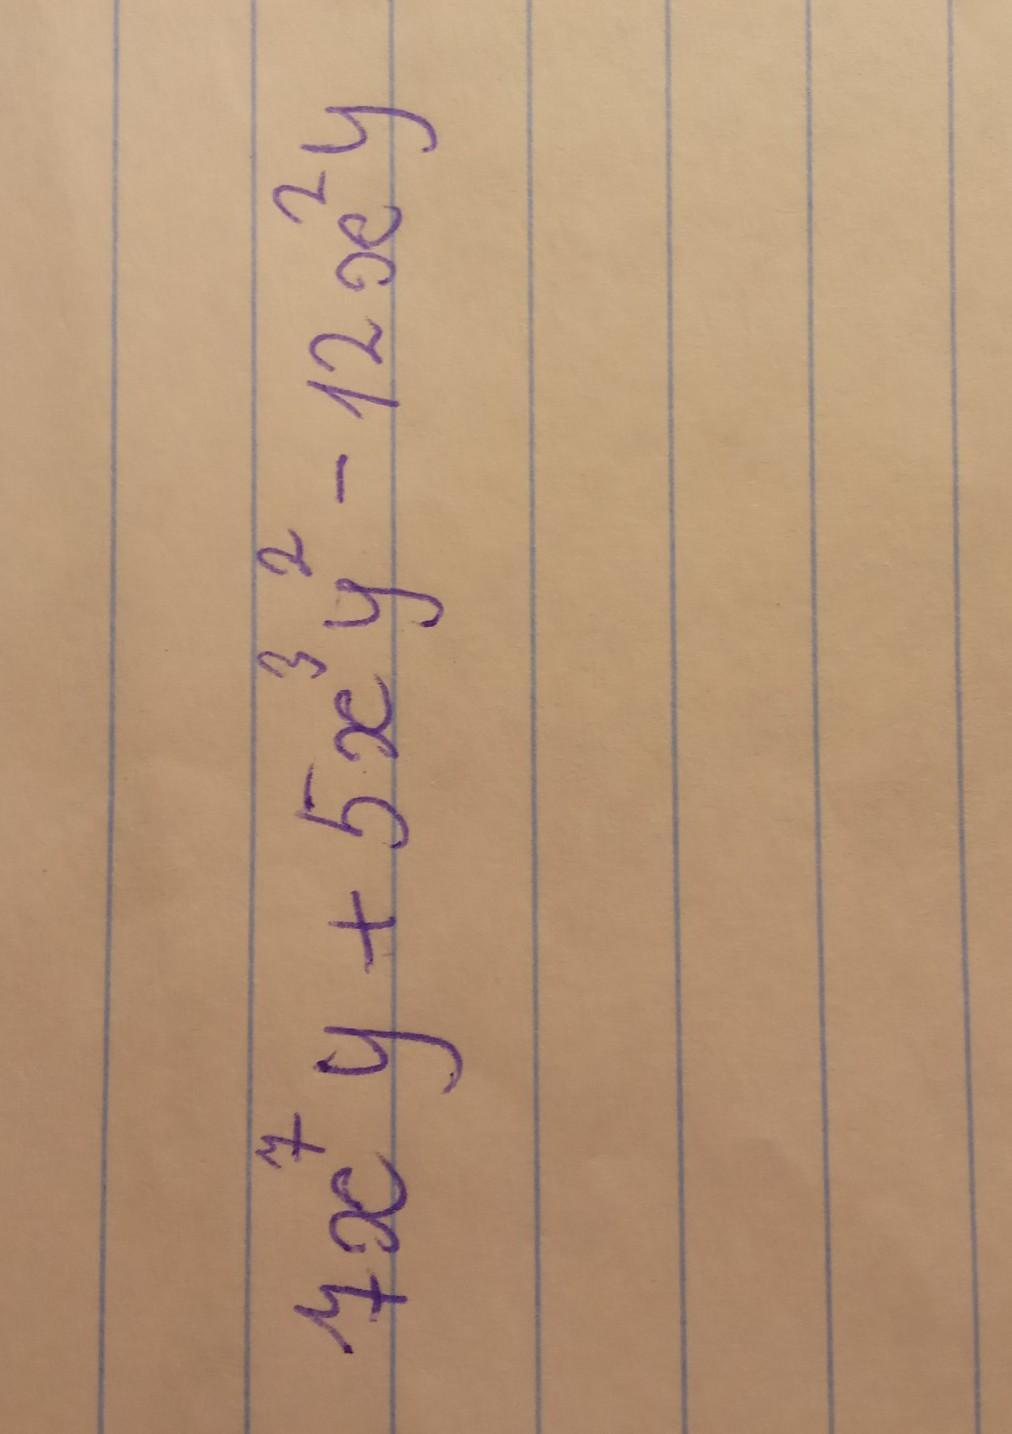 7x⁷y + 5x³y² - 12x²y